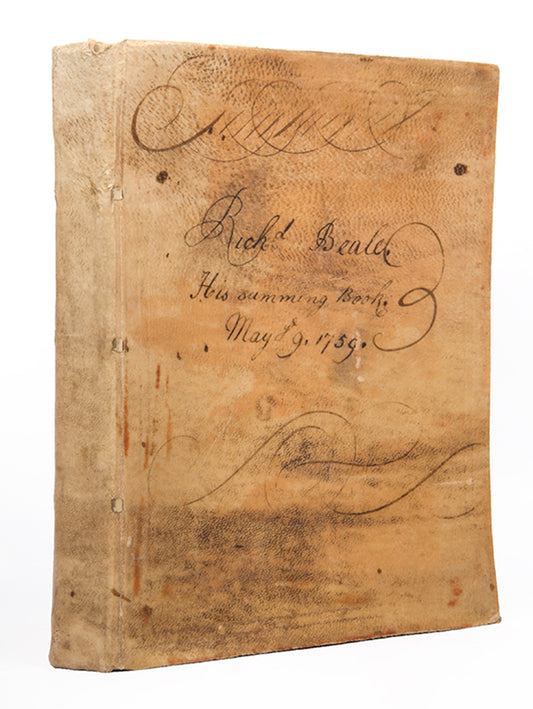 Richd Beale.
His summing Book.
May ye 9. 1759.